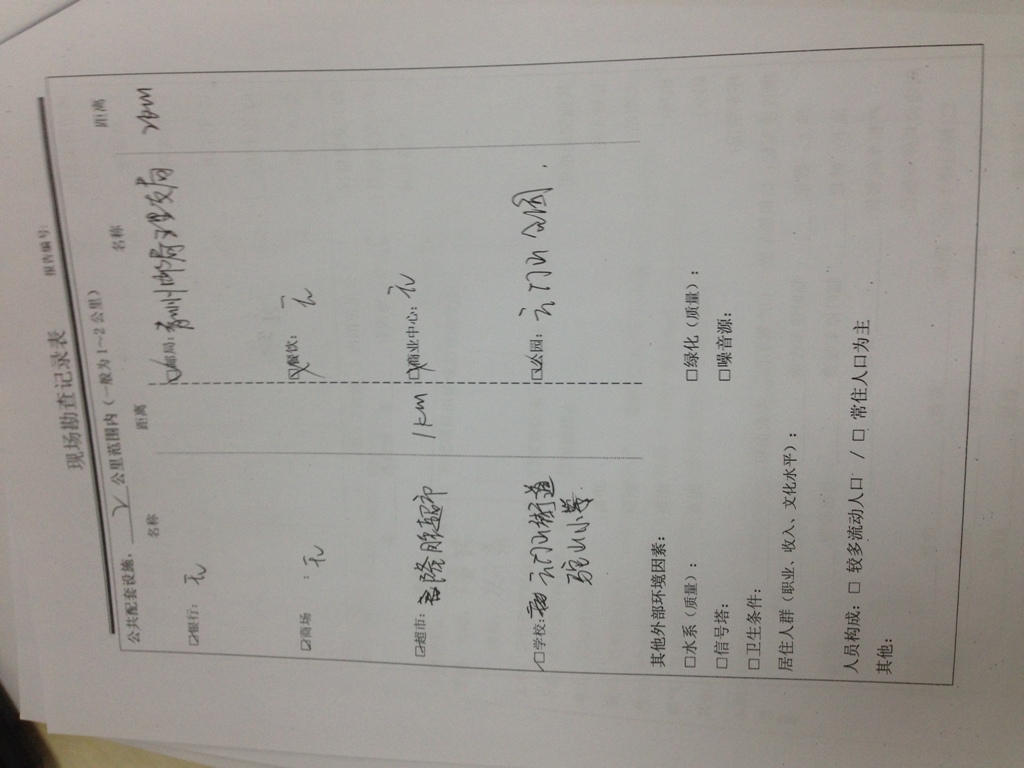 现场勘查记录表
报告编号:
公共配套设施, 2 公里范围内 (一般为 1~2 公里)
名称 距离 名称 距离
☑银行: 无 ☑邮局: 青州市邮 局 2km
☑商场 : 无 ☑餐饮: 无
☑超市: 隆 超市 1km ☑商业中心: 无
☑学校: 云门山街道 ☑公园: 云门山公园.
驼山小学
其他外部环境因素:
□水系 (质量): □绿化 (质量):
□信号塔: □噪音源:
□卫生条件:
居住人群 (职业、收入、文化水平):
人员构成: □ 较多流动人口 / □ 常住人口为主
其他: